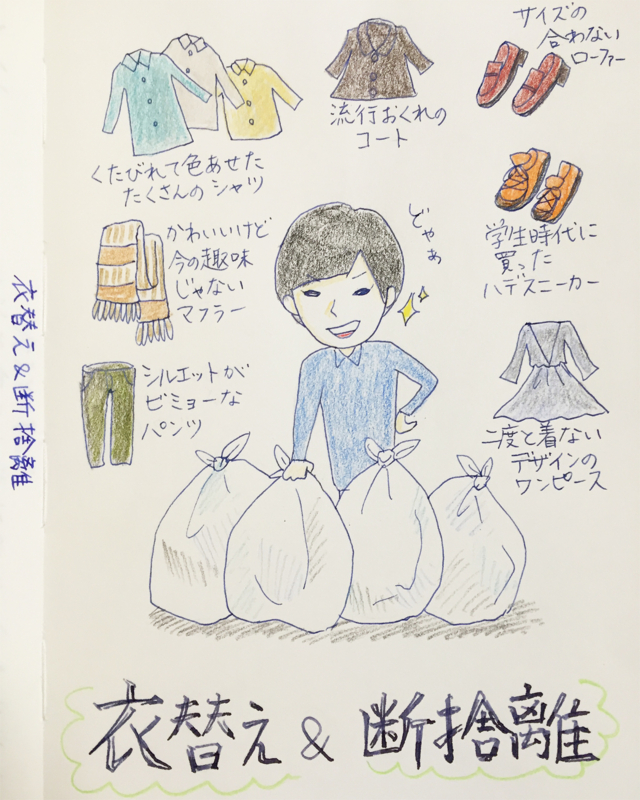 くたびれて色あせた
たくさんのシャツ
流行おくれの
コート
サイズの
合わない
ローファー
かわいいけど
今の趣味
じゃない
マフラー
じゃぁ
学生時代に
買った
ハデスニーカー
シルエットが
ビミョーな
パンツ
二度と着ない
デザインの
ワンピース
衣替え&断捨離
衣替え & 断捨離